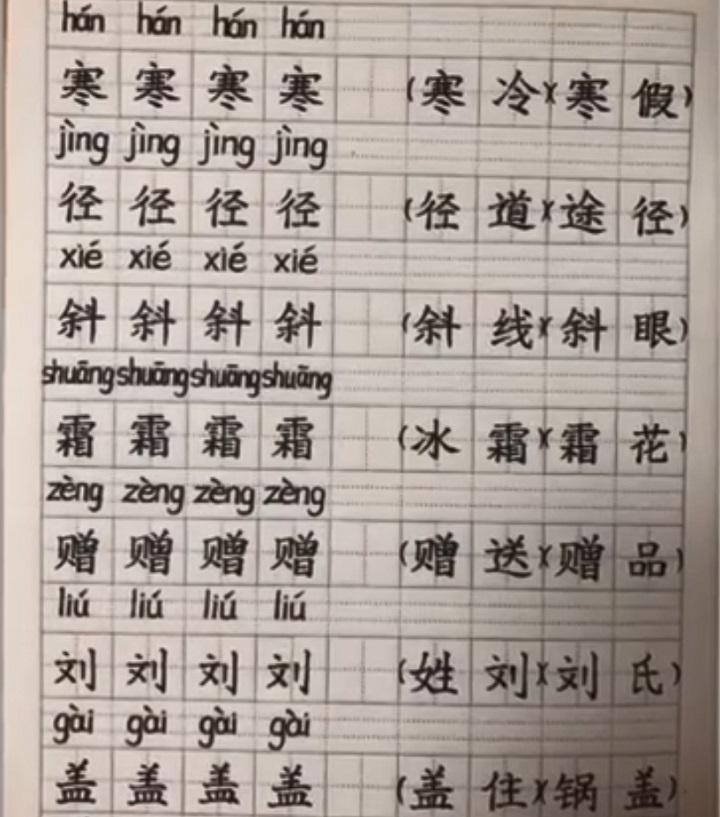 hán hán hán hán
寒 寒 寒 寒 (寒 冷)(寒 假)
jìng jìng jìng jìng
径 径 径 径 (径 道)(途 径)
xié xié xié xié
斜 斜 斜 斜 (斜 线)(斜 眼)
shuāng shuāng shuāng shuāng
霜 霜 霜 霜 (冰 霜)(霜 花)
zèng zèng zèng zèng
赠 赠 赠 赠 (赠 送)(赠 品)
liú liú liú liú
刘 刘 刘 刘 (姓 刘)(刘 氏)
gài gài gài gài
盖 盖 盖 盖 (盖 住)(锅 盖)